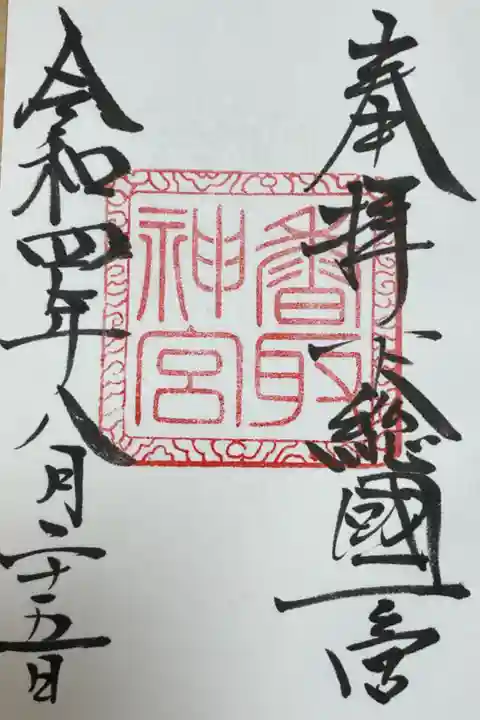 奉拝 下總國一宮
香取
神宮
令和四年八月二十五日